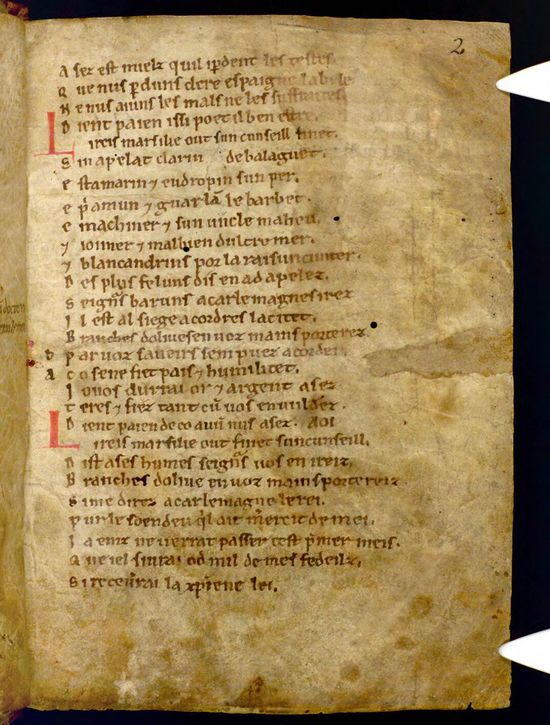 2
A sez est mielz quil ipdent les testes
Q ue nus pduns clere espaigne la bele
N e nus aiuns les mals ne les suffraites
D ient paien issi poet il ben estre.
L i reis marsilie out sun cunseill finet.
S in apelat clarin de balaguet.
e stamarin ⁊ eudropin sun per.
e p̃amun ⁊ guarlã le barbet.
e machiner ⁊ sun uncle maheu.
⁊ iouner ⁊ malbien dultre mer.
⁊ blancandrins por la raisun cunter.
D es plus feluns dis en ad apelez.
S eignᷣs baruns a carlemagnes irez
I l est al siege a cordres la citet.
B ranches doliues en uoz mains porterez
p ar uoz saueirs sem puez acorder
J o uos durrai or ⁊ argent asez
t eres ⁊ fiez tant cū uos en uuldrez.
D ient paien de co auū nus asez. Aoi
L i reis marsilie out finet sun cunseill.
D ist a ses humes seignᷣs uos en ireiz
B ranches doliue en uoz mains portereiz
S i me direz a carlemagne le rei.
p ur le soen deu ql ait mercit de mei.
J a einz ne uerrat passer cest pmer meis.
Q ue iel siurai od mil de mes fedeilz.
S i receurai la xp̃iene lei.